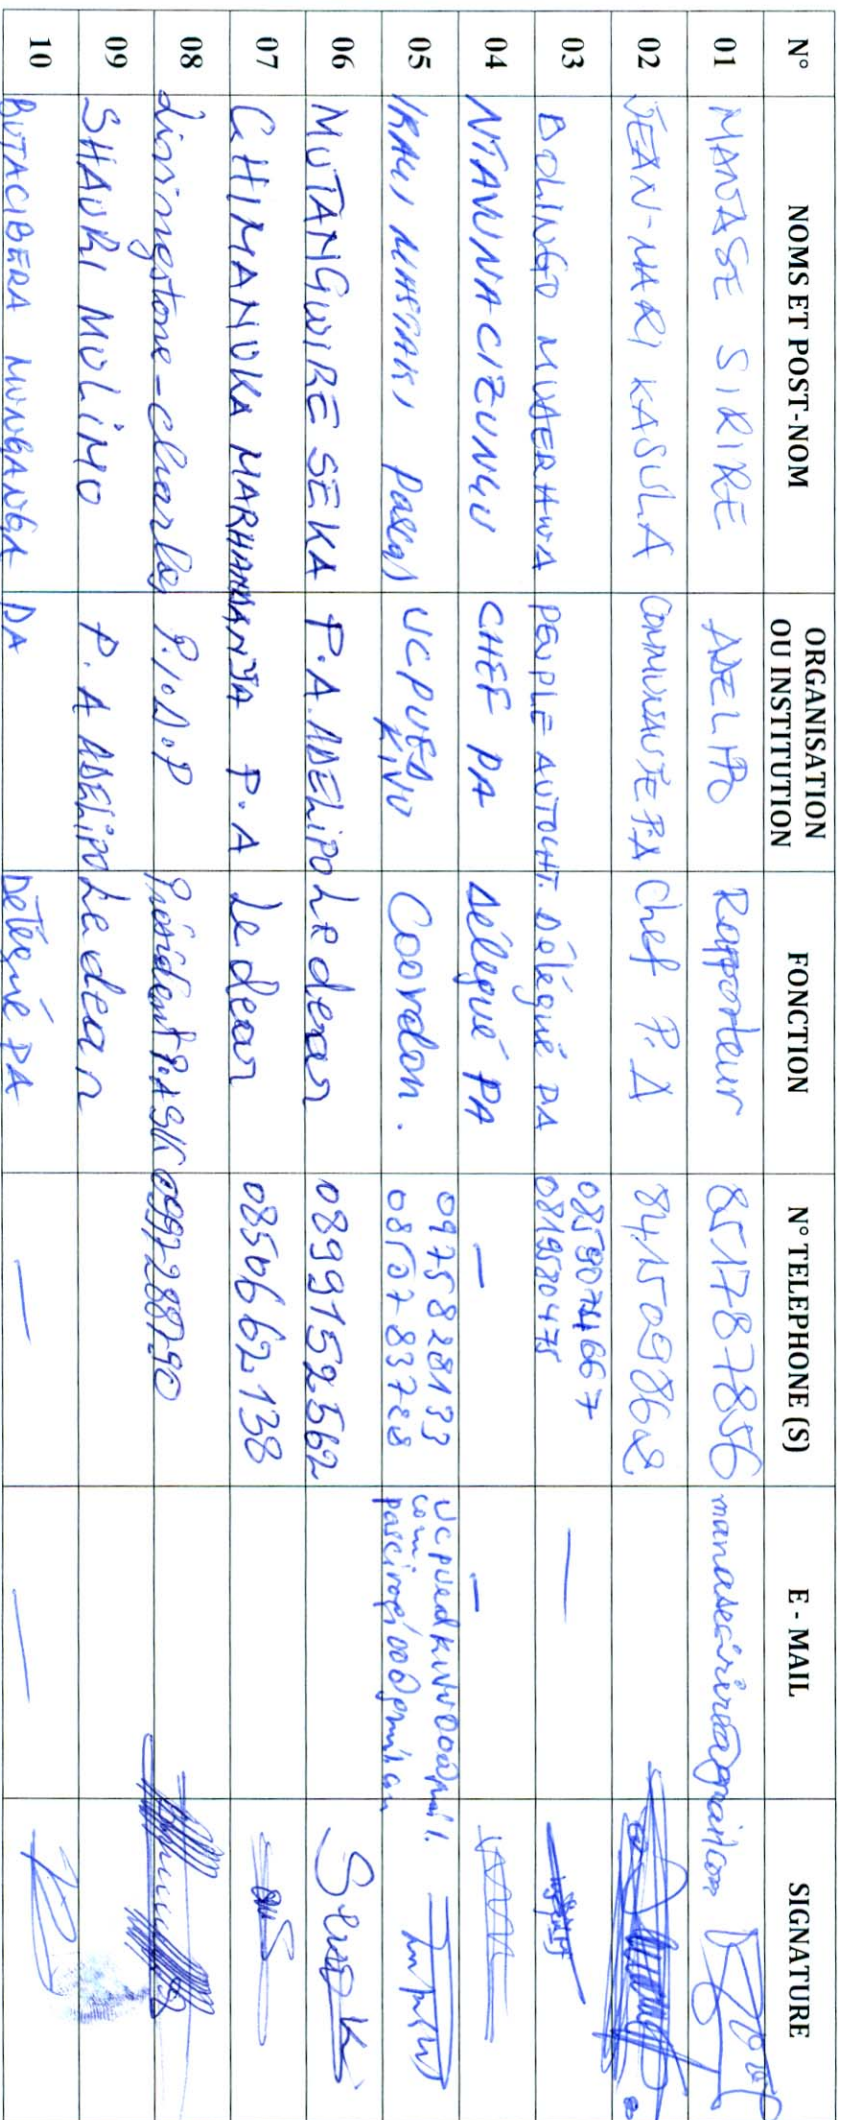 N° NOMS ET POST-NOM ORGANISATION OU INSTITUTION FONCTION N° TELEPHONE (S) E - MAIL SIGNATURE
01 MANASE SIRIRE ADELIPO Rapporteur 851787856
02 JEAN-MARI KASULA COMMUNAUTE P.A Chef P.A 841509868
03 BOLINGO MUDERHWA PEUPLE AUTOCHT. Délégué PA
0819580475 —
04 NTAWUNACIZUNGU CHEF PA Délégué PA — —
05 Pascal UCPUED KIVU Coordon. 0975828133
0850783728
06 MUTANGWIRE SEKA P.A. ADELIPO Ledear 0899152562
07 CHIMANUKA MARHANDANJA P.A Ledear 0850662138
08 Livingstone-Charles P.I.D.P Président P.A SK 0997288790
09 SHAURI MULIMO P.A ADELIPO Ledear
10 BUTACIBERA MUNGANGA PA Délégué PA — —